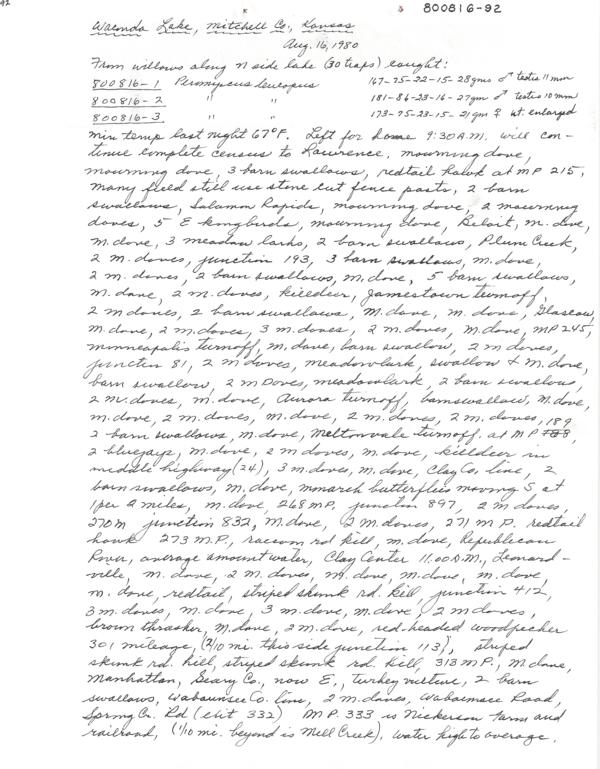 92
800816-92
Waconda Lake, Mitchell Co., Kansas
Aug. 16, 1980
From willows along N side lake (30 traps) caught:
800816-1 Peromyscus leucopus 167-75-22-15-28gms ♂ testis 11 mm
800816-2 " " 181-86-23-16-27gm ♂ testis 10 mm
800816-3 " " 173-75-23-15-21gm ♀ ut. enlarged
min temp last night 67°F. Left for home 9:30 A.M. will con-
tinue complete census to Lawrence. mourning dove,
mourning dove, 3 barn swallows, redtail hawk at MP 215,
many field still use stone cut fence posts, 2 barn
swallows, Solomon Rapids, mourning dove, 2 mourning
doves, 5 E kingbirds, mourning dove, Beloit, m. dove,
m. dove, 3 meadow larks, 2 barn swallows, Plum Creek,
2 m. doves, junction 193, 3 barn swallows, m. dove,
2 m. doves, 2 barn swallows, m. dove, 5 barn swallows,
m. dove, 2 m. doves, killdeer, Jamestown turnoff,
2 m doves, 2 barn swallows, m. dove, m. dove, Glascow,
m. dove, 2 m. doves, 3 m. doves, 2 m. doves, m. dove, MP 245,
minneapolis turnoff, m. dove, barn swallow, 2 m. doves,
junction 81, 2 m doves, meadowlark, swallow & m. dove,
barn swallow, 2 m Doves, meadowlark, 2 barn swallow,
2 m. doves, m. dove, Aurora turnoff, barnswallow, m. dove,
m. dove, 2 m. doves, m. dove, 2 m. doves, 2 m. doves, 189
2 barn swallows, m. dove, Meltonvale turnoff. at MP,
2 bluejays, m. dove, 2 m. doves, m. dove, killdeer in
middle highway (24), 3 m. doves, m. dove, Clay Co. line, 2
barn swallows, m. dove, monarch butterflies moving S at
1 per 2 miles, m. dove, 268 MP, junction 897, 2 m. doves,
270 m junction 832, m. dove, 2 m. doves, 271 M.P. redtail
hawk 273 M.P., raccoon rd kill, m. dove, Republican
River, average amount water, Clay Center 11:00 A.M., Leonard-
ville, m. dove, 2 m. doves, m. dove, m. dove, m. dove,
m. dove, redtail, striped skunk rd. kill, junction 412,
3 m. doves, m. dove, 3 m. dove, m. dove, 2 m doves,
brown thrasher, m. dove, 2 m. dove, red-headed woodpecker
301 mileage, (2/10 mi. this side junction 113), striped
skunk rd. kill, striped skunk rd. kill, 313 M.P., m. dove,
Manhattan, Geary Co., now E., turkey vulture, 2 barn
swallows, Wabaunsee Co. line, 2 m. doves, Wabaunsee Road,
Spring Cr. Rd (exit 332) M.P. 333 is Nickerson Farm and
railroad, (1/10 mi. beyond is Mill Creek). water high to average.